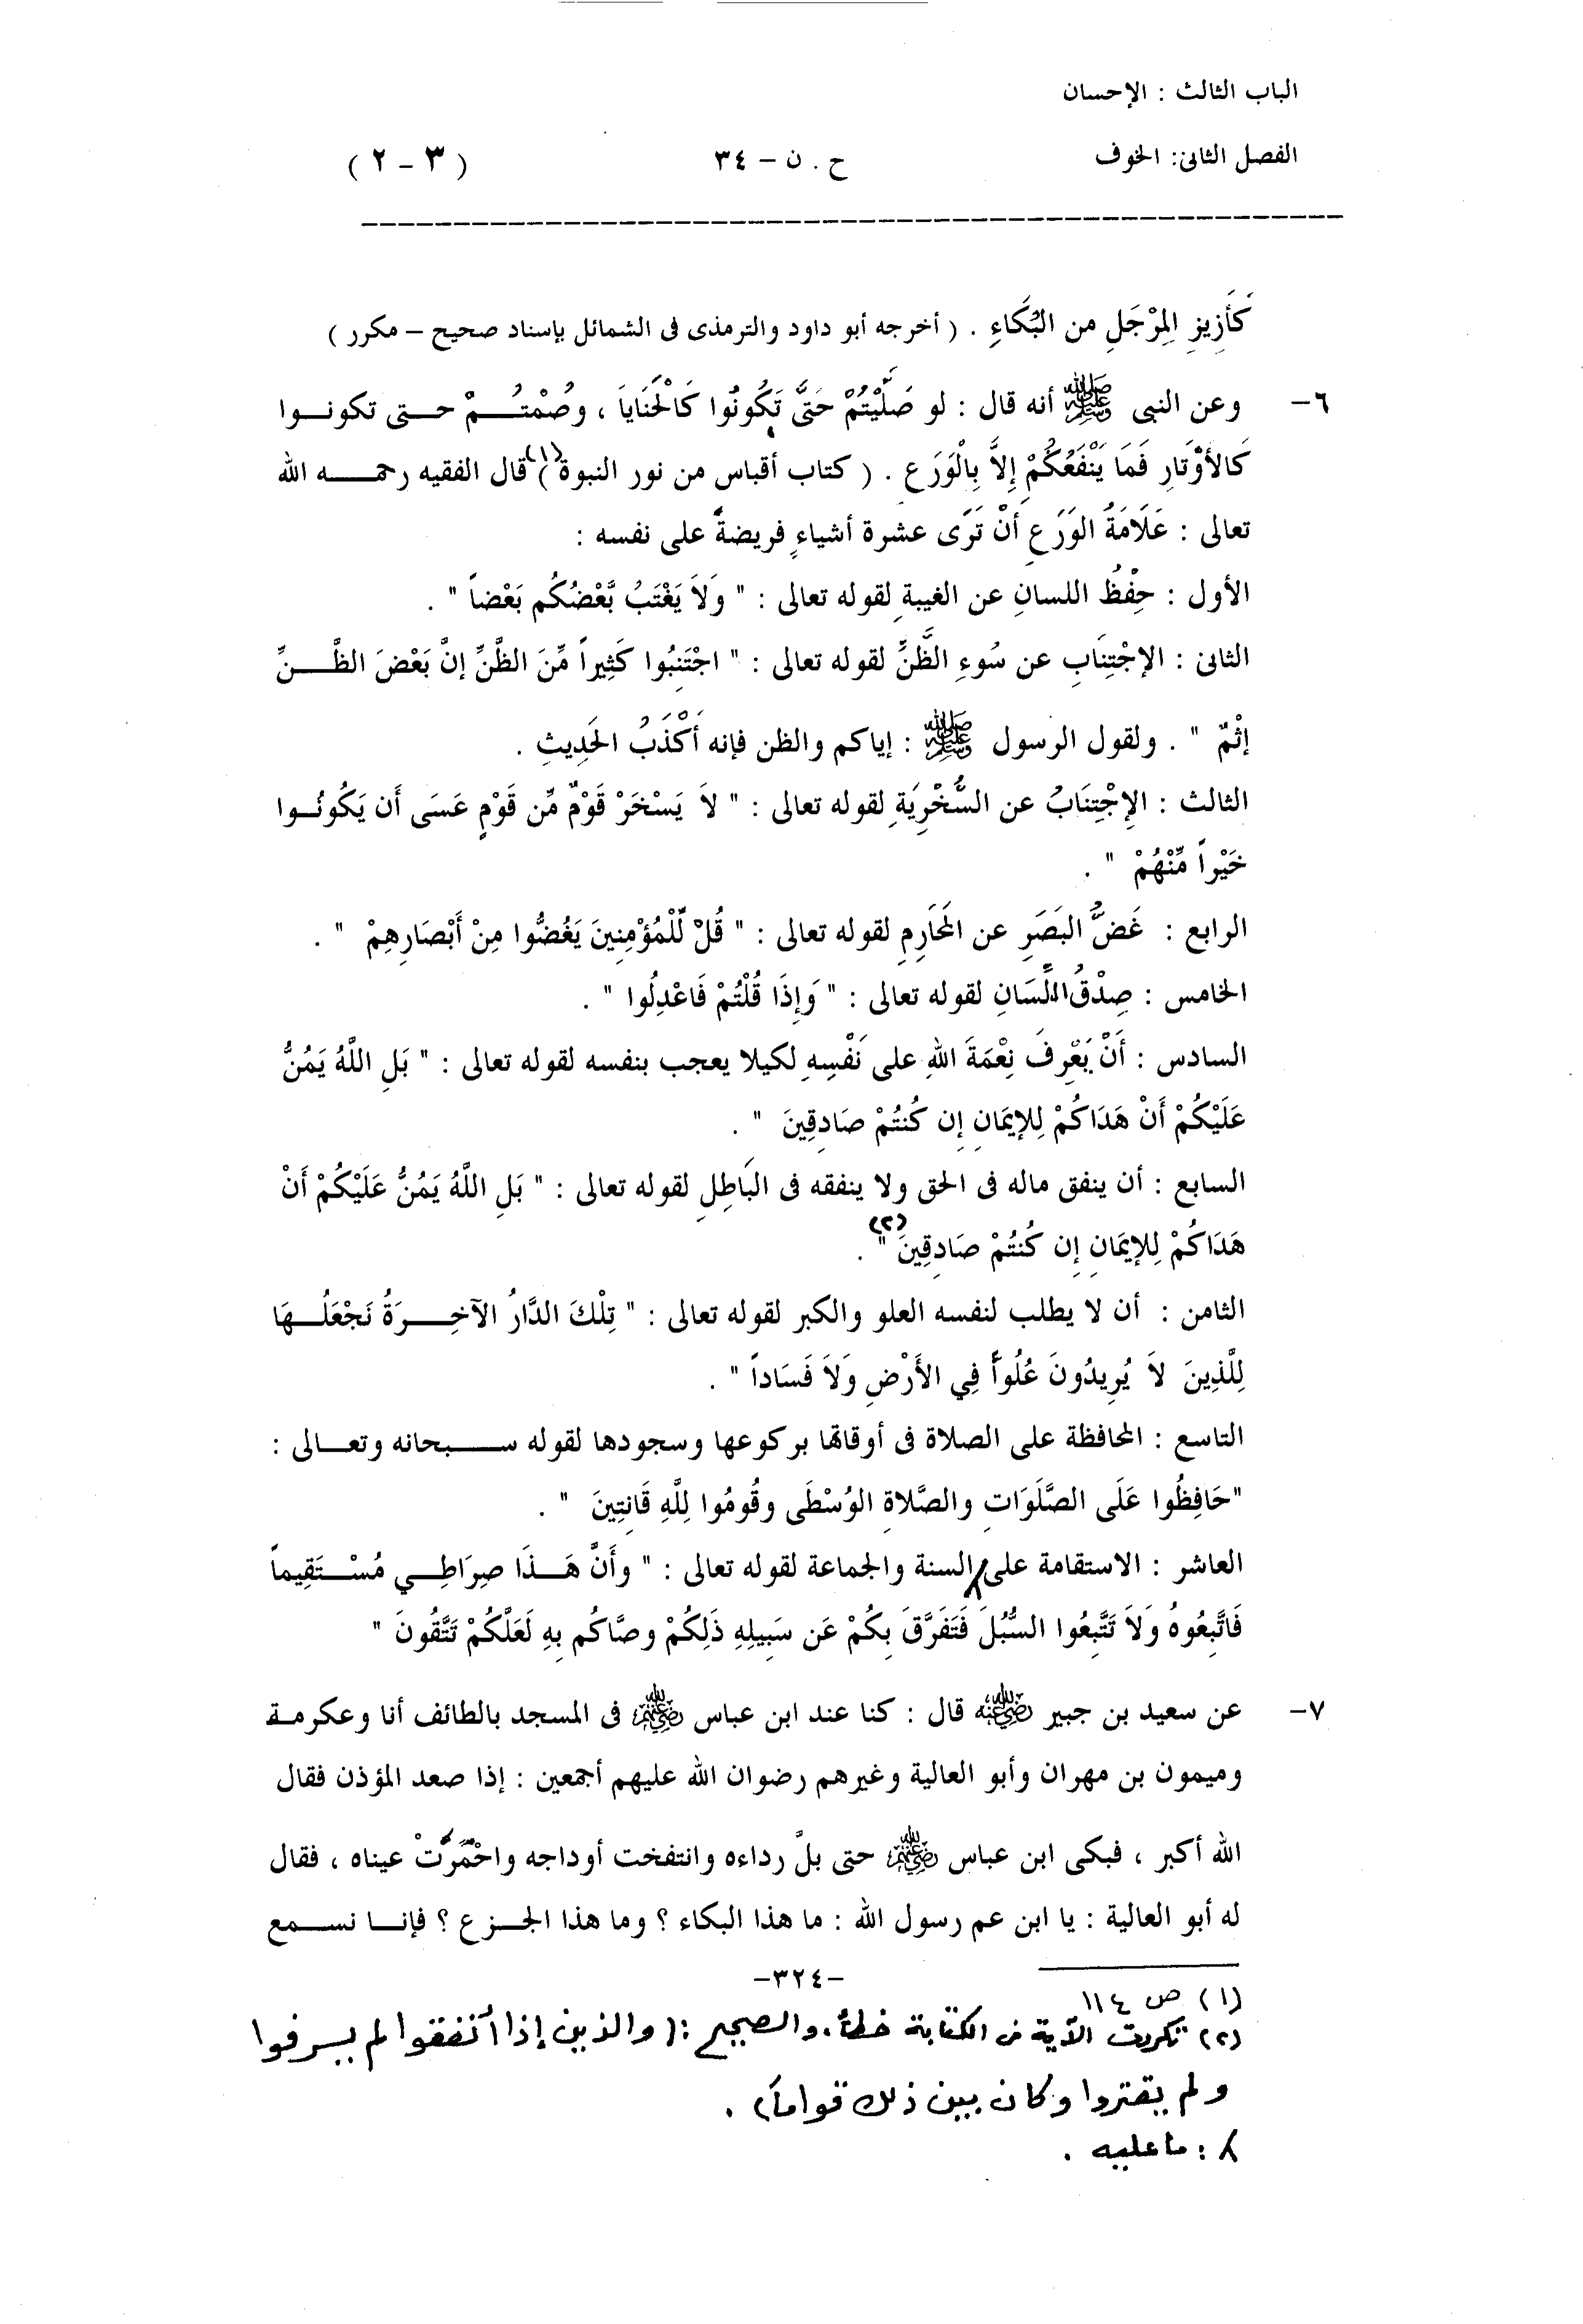 الباب الثالث : الإحسان
الفصل الثانى: الخوف ح . ن – ٣٤ ( ٣ – ٢ )
كَأَزِيزِ المِرْجَلِ من البُكَاءِ . ( أخرجه أبو داود والترمذى فى الشمائل بإسناد صحيح – مكرر )
٦– وعن النبى ﷺ أنه قال : لو صَلَّيْتُمْ حَتَّى تَكُونُوا كَالْحَنَايَا ، وصُمْتُمْ حتى تكونوا
كَالأَوْتَارِ فَمَا يَنْفَعُكُمْ إِلاَّ بِالْوَرَعِ . ( كتاب أقباس من نور النبوة(١) ) قال الفقيه رحمه الله
تعالى : عَلَامَةُ الوَرَعِ أَنْ تَرَى عشرة أشياءٍ فريضةً على نفسه :
الأول : حِفْظُ اللسانِ عن الغيبةِ لقوله تعالى : " وَلاَ يَغْتَبُ بَّعْضُكُم بَعْضاً " .
الثانى : الإجْتِنَابِ عن سُوءِ الظَّنِّ لقوله تعالى : " اجْتَنِبُوا كَثِيراً مِّنَ الظَّنِّ إنَّ بَعْضَ الظَّنِّ
إثْمٌ " . ولقول الرسول ﷺ : إياكم والظن فإنه أَكْذَبُ الحَدِيثِ .
الثالث : الإِجْتِنَابُ عن السُّخْرِيَةِ لقوله تعالى : " لاَ يَسْخَرْ قَوْمٌ مِّن قَوْمٍ عَسَى أَن يَكُونُوا
خَيْراً مِّنْهُمْ " .
الرابع : غَضُّ البَصَرِ عن المَحَارِمِ لقوله تعالى : " قُلْ لِّلْمُؤْمِنِينَ يَغُضُّوا مِنْ أَبْصَارِهِمْ " .
الخامس : صِدْقُ اللِّسَانِ لقوله تعالى : " وَإِذَا قُلْتُمْ فَاعْدِلُوا " .
السادس : أَنْ يَعْرِفَ نِعْمَةَ اللهِ على نَفْسِهِ لكيلا يعجب بنفسه لقوله تعالى : " بَلِ اللَّهُ يَمُنُّ
عَلَيْكُمْ أَنْ هَدَاكُمْ لِلإيمَانِ إِن كُنتُمْ صَادِقِينَ " .
السابع : أن ينفق ماله فى الحق ولا ينفقه فى البَاطِلِ لقوله تعالى : " بَلِ اللَّهُ يَمُنُّ عَلَيْكُمْ أَنْ
هَدَاكُمْ لِلإيمَانِ إِن كُنتُمْ صَادِقِينَ "(٢) .
الثامن : أن لا يطلب لنفسه العلو والكبر لقوله تعالى : " تِلْكَ الدَّارُ الآخِرَةُ نَجْعَلُهَا
لِلَّذِينَ لاَ يُرِيدُونَ عُلُواًّ فِي الأَرْضِ وَلاَ فَسَاداً " .
التاسع : المحافظة على الصلاة فى أوقاتها بركوعها وسجودها لقوله سبحانه وتعالى :
"حَافِظُوا عَلَى الصَّلَوَاتِ والصَّلاةِ الوُسْطَى وقُومُوا لِلَّهِ قَانِتِينَ " .
العاشر : الاستقامة على ٨ السنة والجماعة لقوله تعالى : " وأَنَّ هَذَا صِرَاطِي مُسْتَقِيماً
فَاتَّبِعُوهُ وَلاَ تَتَّبِعُوا السُّبُلَ فَتَفَرَّقَ بِكُمْ عَن سَبِيلِهِ ذَلِكُمْ وصَّاكُم بِهِ لَعَلَّكُمْ تَتَّقُونَ "
٧– عن سعيد بن جبير رضي الله عنه قال : كنا عند ابن عباس رضي الله عنهم فى المسجد بالطائف أنا وعكرمة
وميمون بن مهران وأبو العالية وغيرهم رضوان الله عليهم أجمعين : إذا صعد المؤذن فقال
الله أكبر ، فبكى ابن عباس رضي الله عنهم حتى بلَّ رداءه وانتفخت أوداجه واحْمَرَّتْ عيناه ، فقال
له أبو العالية : يا ابن عم رسول الله : ما هذا البكاء ؟ وما هذا الجزع ؟ فإنا نسمع
–٣٢٤–
(١) ص ١١٤
(٢) تكررت الآية فى الكتابة خطأ. والصحيح : ( والذين إذا أنفقوا لم يسرفوا
ولم يقتروا وكان بين ذلك قواماً) .
٨ : ما عليه .